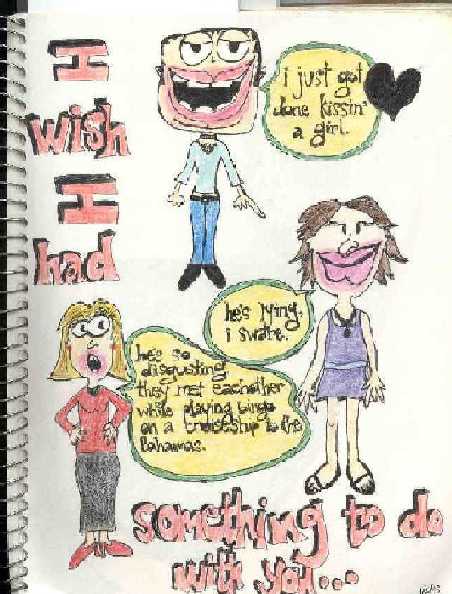 I
wish
I
had
i just got
done kissin'
a girl.
he's lying.
i sware.
he's so
disgusting.
they met eachother
while playing bingo
on a cruiseship to the
Bahamas.
something to do
with you...